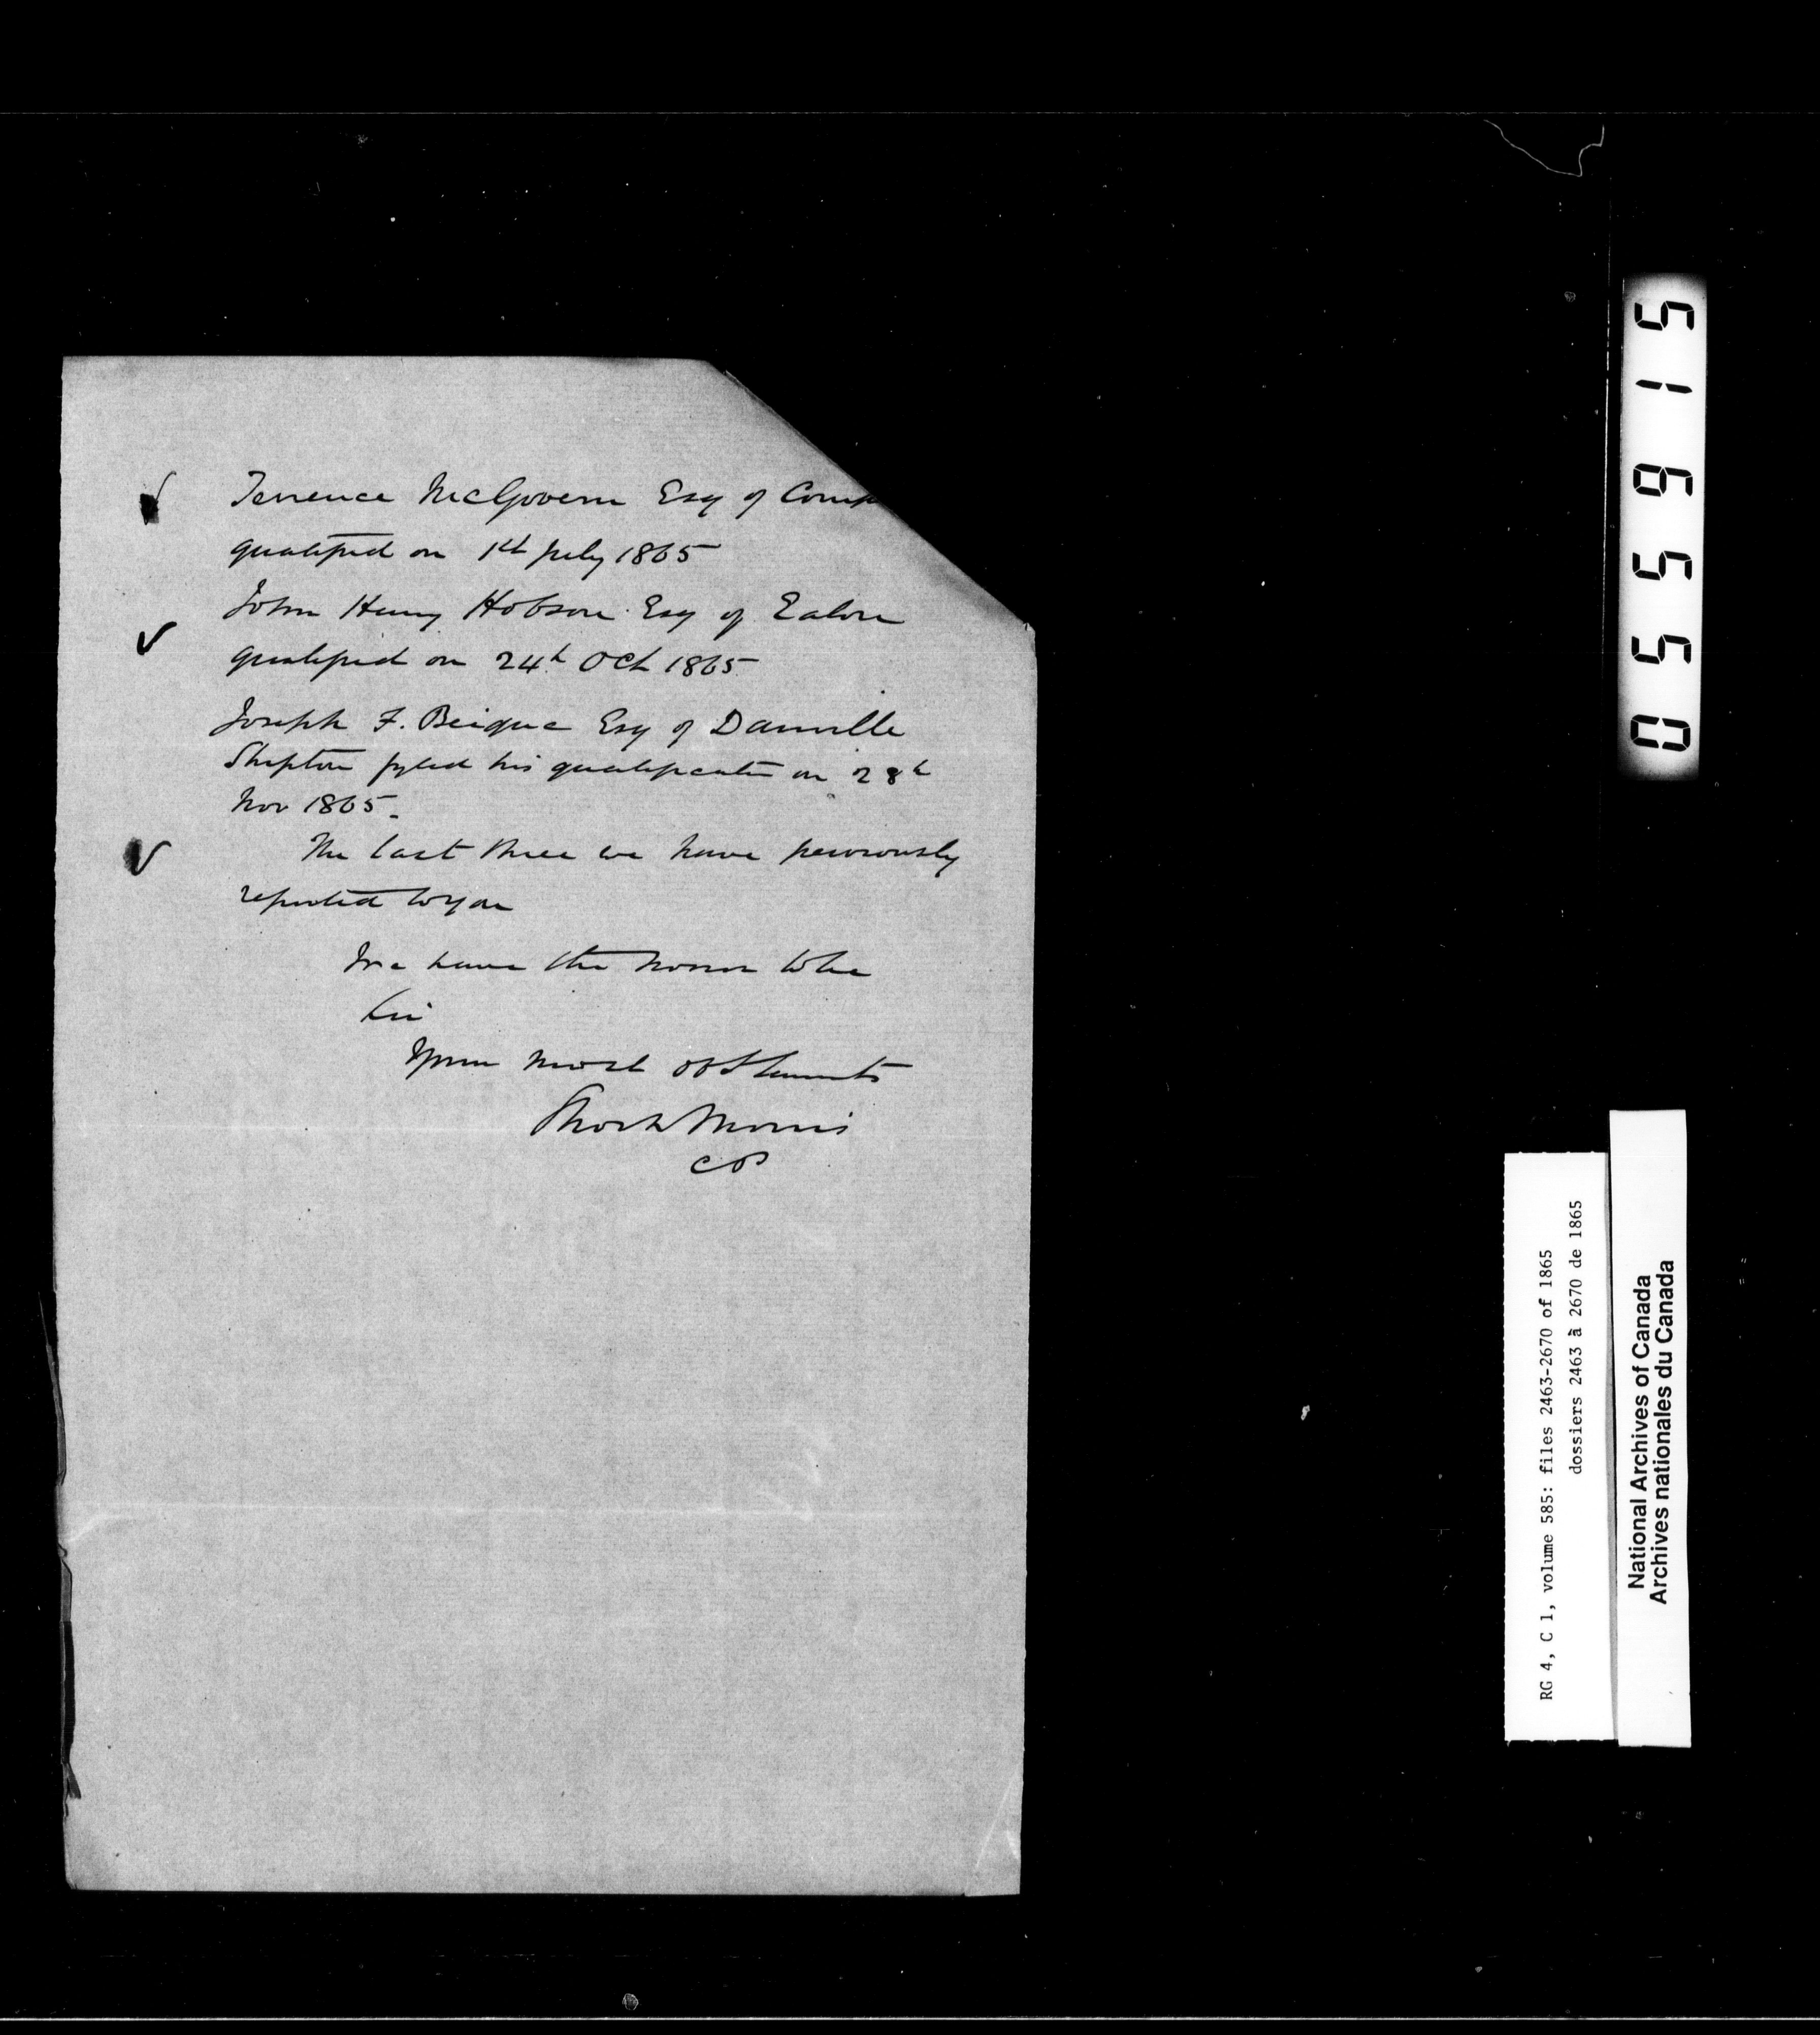 Terrence McGovern Esq of Comp
qualified on 1st July 1865
John Henry Hobson Esq of Eaton
qualified on 24th Oct 1865
Joseph F. Beique Esq of Danville
Shipton fyled his qualification on 28th
Nov 1865.
The last three we have previously
reported to you
We have the honor to be
Sir
Your most obt Servants
Short & Morris
CP
055615
RG 4, C 1, volume 585: files 2463-2670 of 1865
dossiers 2463 à 2670 de 1865
National Archives of Canada
Archives nationales du Canada